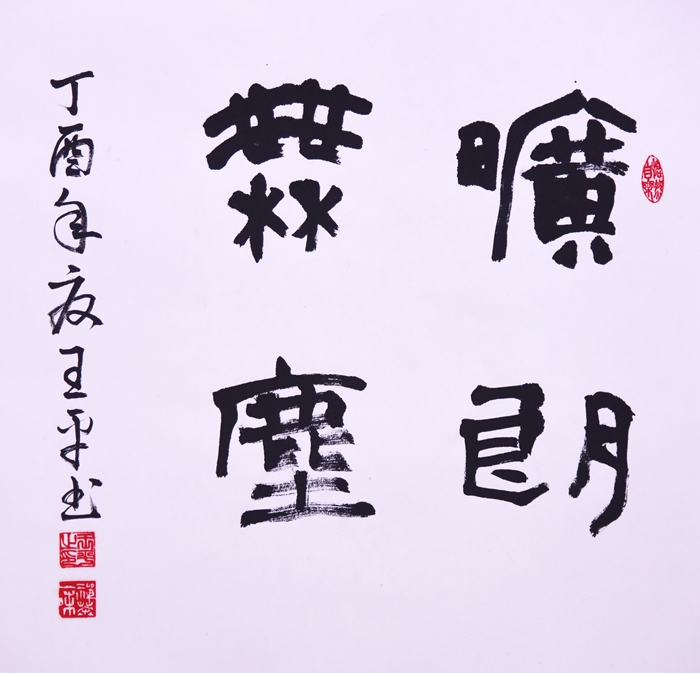 曠朗
無塵
丁酉年夏王平书